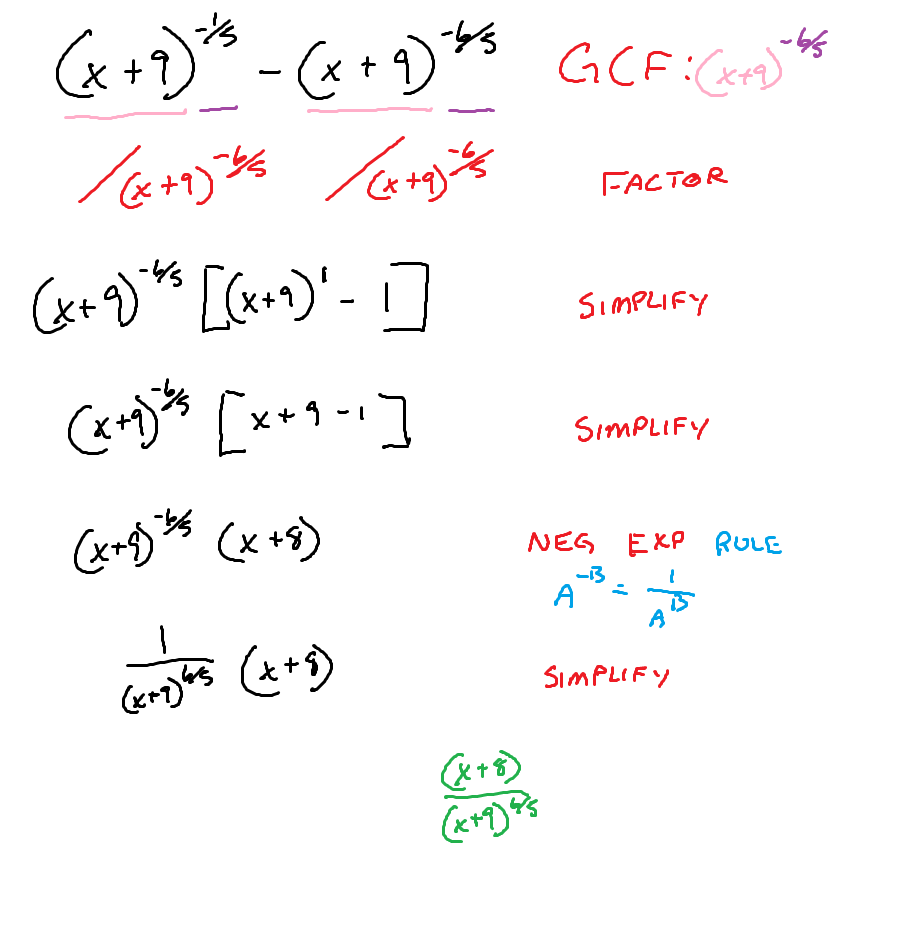 (x+9)^{-1/5} - (x+9)^{-6/5} GCF: (x+9)^{-6/5}
/(x+9)^{-6/5} /(x+9)^{-6/5} FACTOR
(x+9)^{-6/5} [(x+9)^1 - 1] SIMPLIFY
(x+9)^{-6/5} [x+9-1] SIMPLIFY
(x+9)^{-6/5} (x+8) NEG EXP RULE
A^{-B} = 1/A^{B}
1/(x+9)^{6/5} (x+8) SIMPLIFY
(x+8)/(x+9)^{6/5}